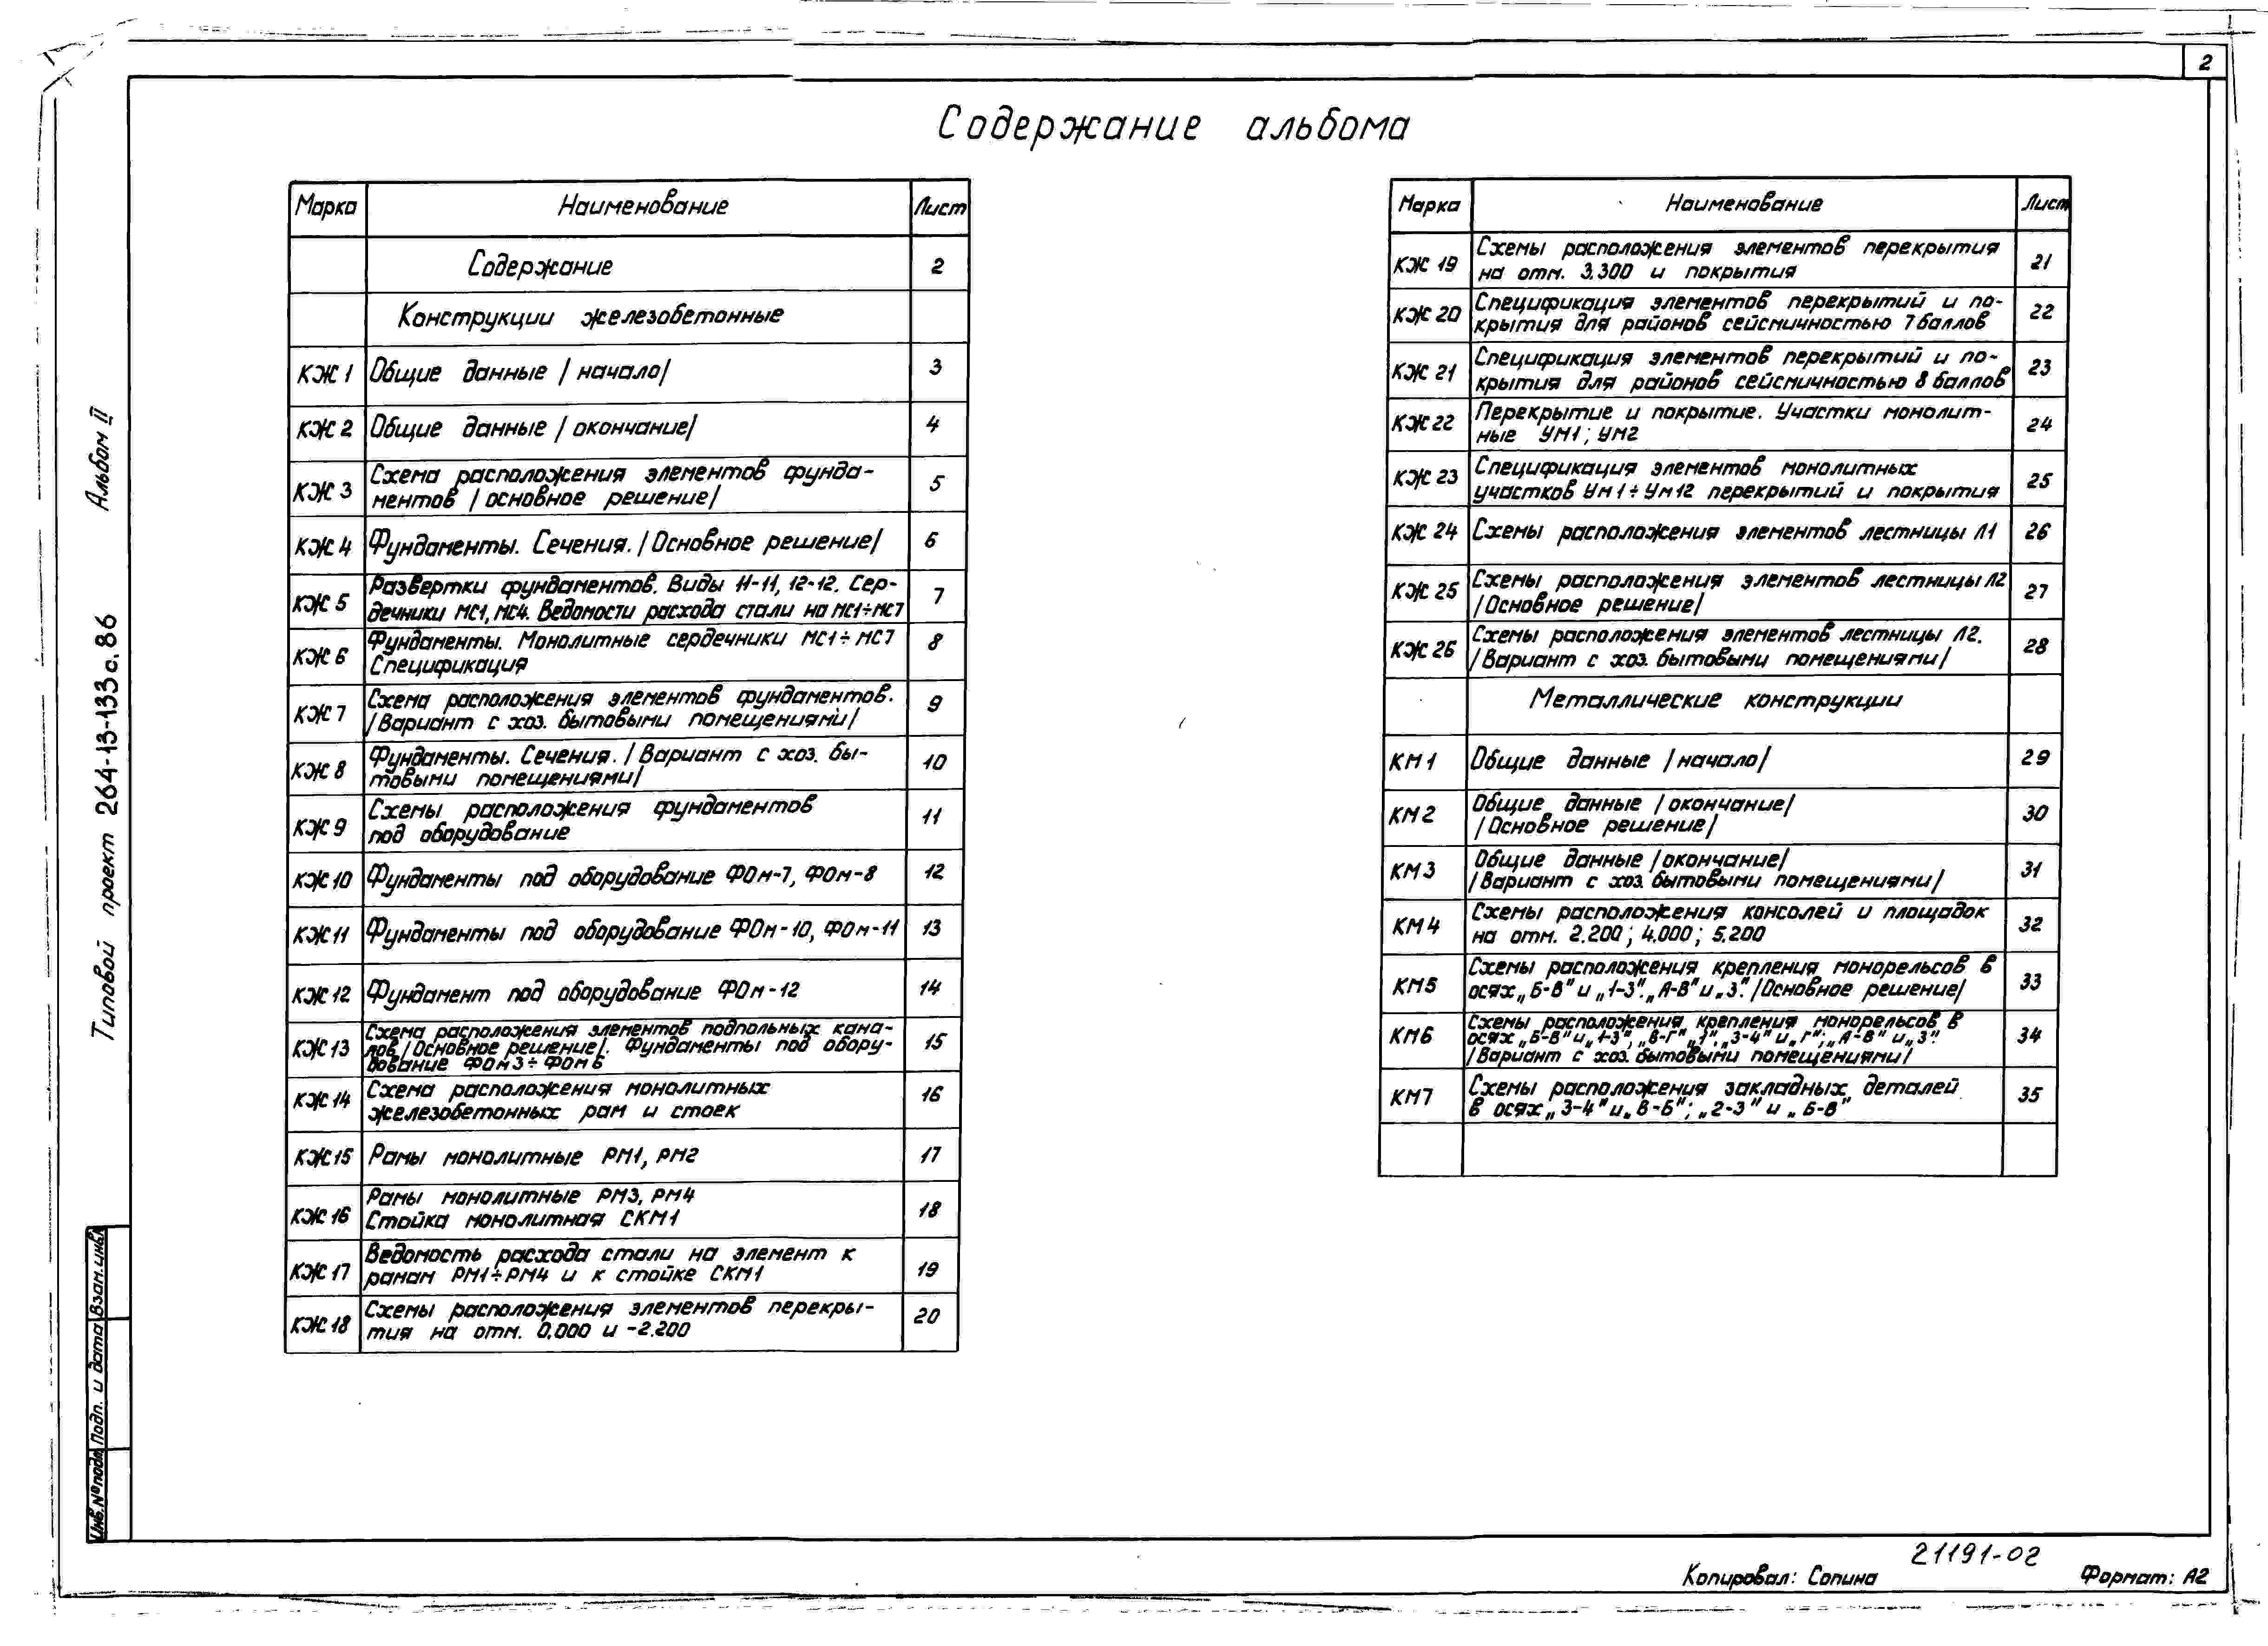 2
Содержание альбома
Типовой проект 264-13-133с.86 Альбом II
Марка Наименование Лист
Содержание 2
Конструкции железобетонные
КЖ 1 Общие данные /начало/ 3
КЖ 2 Общие данные /окончание/ 4
КЖ 3 Схема расположения элементов фунда-
ментов /основное решение/ 5
КЖ 4 Фундаменты. Сечения. /Основное решение/ 6
КЖ 5 Развертки фундаментов. Виды 11-11, 12-12. Сер-
дечники МС1, МС4. Ведомости расхода стали на МС1÷МС7 7
КЖ 6 Фундаменты. Монолитные сердечники МС1÷МС7
Спецификация 8
КЖ 7 Схема расположения элементов фундаментов.
/Вариант с хоз. бытовыми помещениями/ 9
КЖ 8 Фундаменты. Сечения. /Вариант с хоз. бы-
товыми помещениями/ 10
КЖ 9 Схемы расположения фундаментов
под оборудование 11
КЖ 10 Фундаменты под оборудование ФОм-7, ФОм-8 12
КЖ 11 Фундаменты под оборудование ФОм-10, ФОм-11 13
КЖ 12 Фундамент под оборудование ФОм-12 14
КЖ 13 Схема расположения элементов подпольных кана-
лов /Основное решение/. Фундаменты под обору-
дование ФОм3÷ФОм6 15
КЖ 14 Схема расположения монолитных
железобетонных рам и стоек 16
КЖ 15 Рамы монолитные РМ1, РМ2 17
КЖ 16 Рамы монолитные РМ3, РМ4
Стойка монолитная СКМ1 18
КЖ 17 Ведомость расхода стали на элемент к
рамам РМ1÷РМ4 и к стойке СКМ1 19
КЖ 18 Схемы расположения элементов перекры-
тия на отм. 0.000 и -2.200 20
Марка Наименование Лист
КЖ 19 Схемы расположения элементов перекрытия
на отм. 3.300 и покрытия 21
КЖ 20 Спецификация элементов перекрытий и по-
крытия для районов сейсмичностью 7 баллов 22
КЖ 21 Спецификация элементов перекрытий и по-
крытия для районов сейсмичностью 8 баллов 23
КЖ 22 Перекрытие и покрытие. Участки монолит-
ные УМ1; УМ2 24
КЖ 23 Спецификация элементов монолитных
участков Ум1÷Ум12 перекрытий и покрытия 25
КЖ 24 Схемы расположения элементов лестницы Л1 26
КЖ 25 Схемы расположения элементов лестницы Л2
/Основное решение/ 27
КЖ 26 Схемы расположения элементов лестницы Л2.
/Вариант с хоз. бытовыми помещениями/ 28
Металлические конструкции
КМ 1 Общие данные /начало/ 29
КМ 2 Общие данные /окончание/
/Основное решение/ 30
КМ 3 Общие данные /окончание/
/Вариант с хоз. бытовыми помещениями/ 31
КМ 4 Схемы расположения консолей и площадок
на отм. 2.200; 4.000; 5.200 32
КМ5 Схемы расположения крепления монорельсов в
осях „Б-В" и „1-3". „А-В" и „3". /Основное решение/ 33
КМ6 Схемы расположения крепления монорельсов в
осях „Б-В" и „1-3", „В-Г" „1". „3-4" и „Г"; „А-В" и „3".
/Вариант с хоз. бытовыми помещениями/ 34
КМ7 Схемы расположения закладных деталей
в осях „3-4" и „В-Б"; „2-3" и „Б-В" 35
Инв.№подл. Подп. и дата Взам.инв.
21191-02
Копировал: Сопина Формат: А2